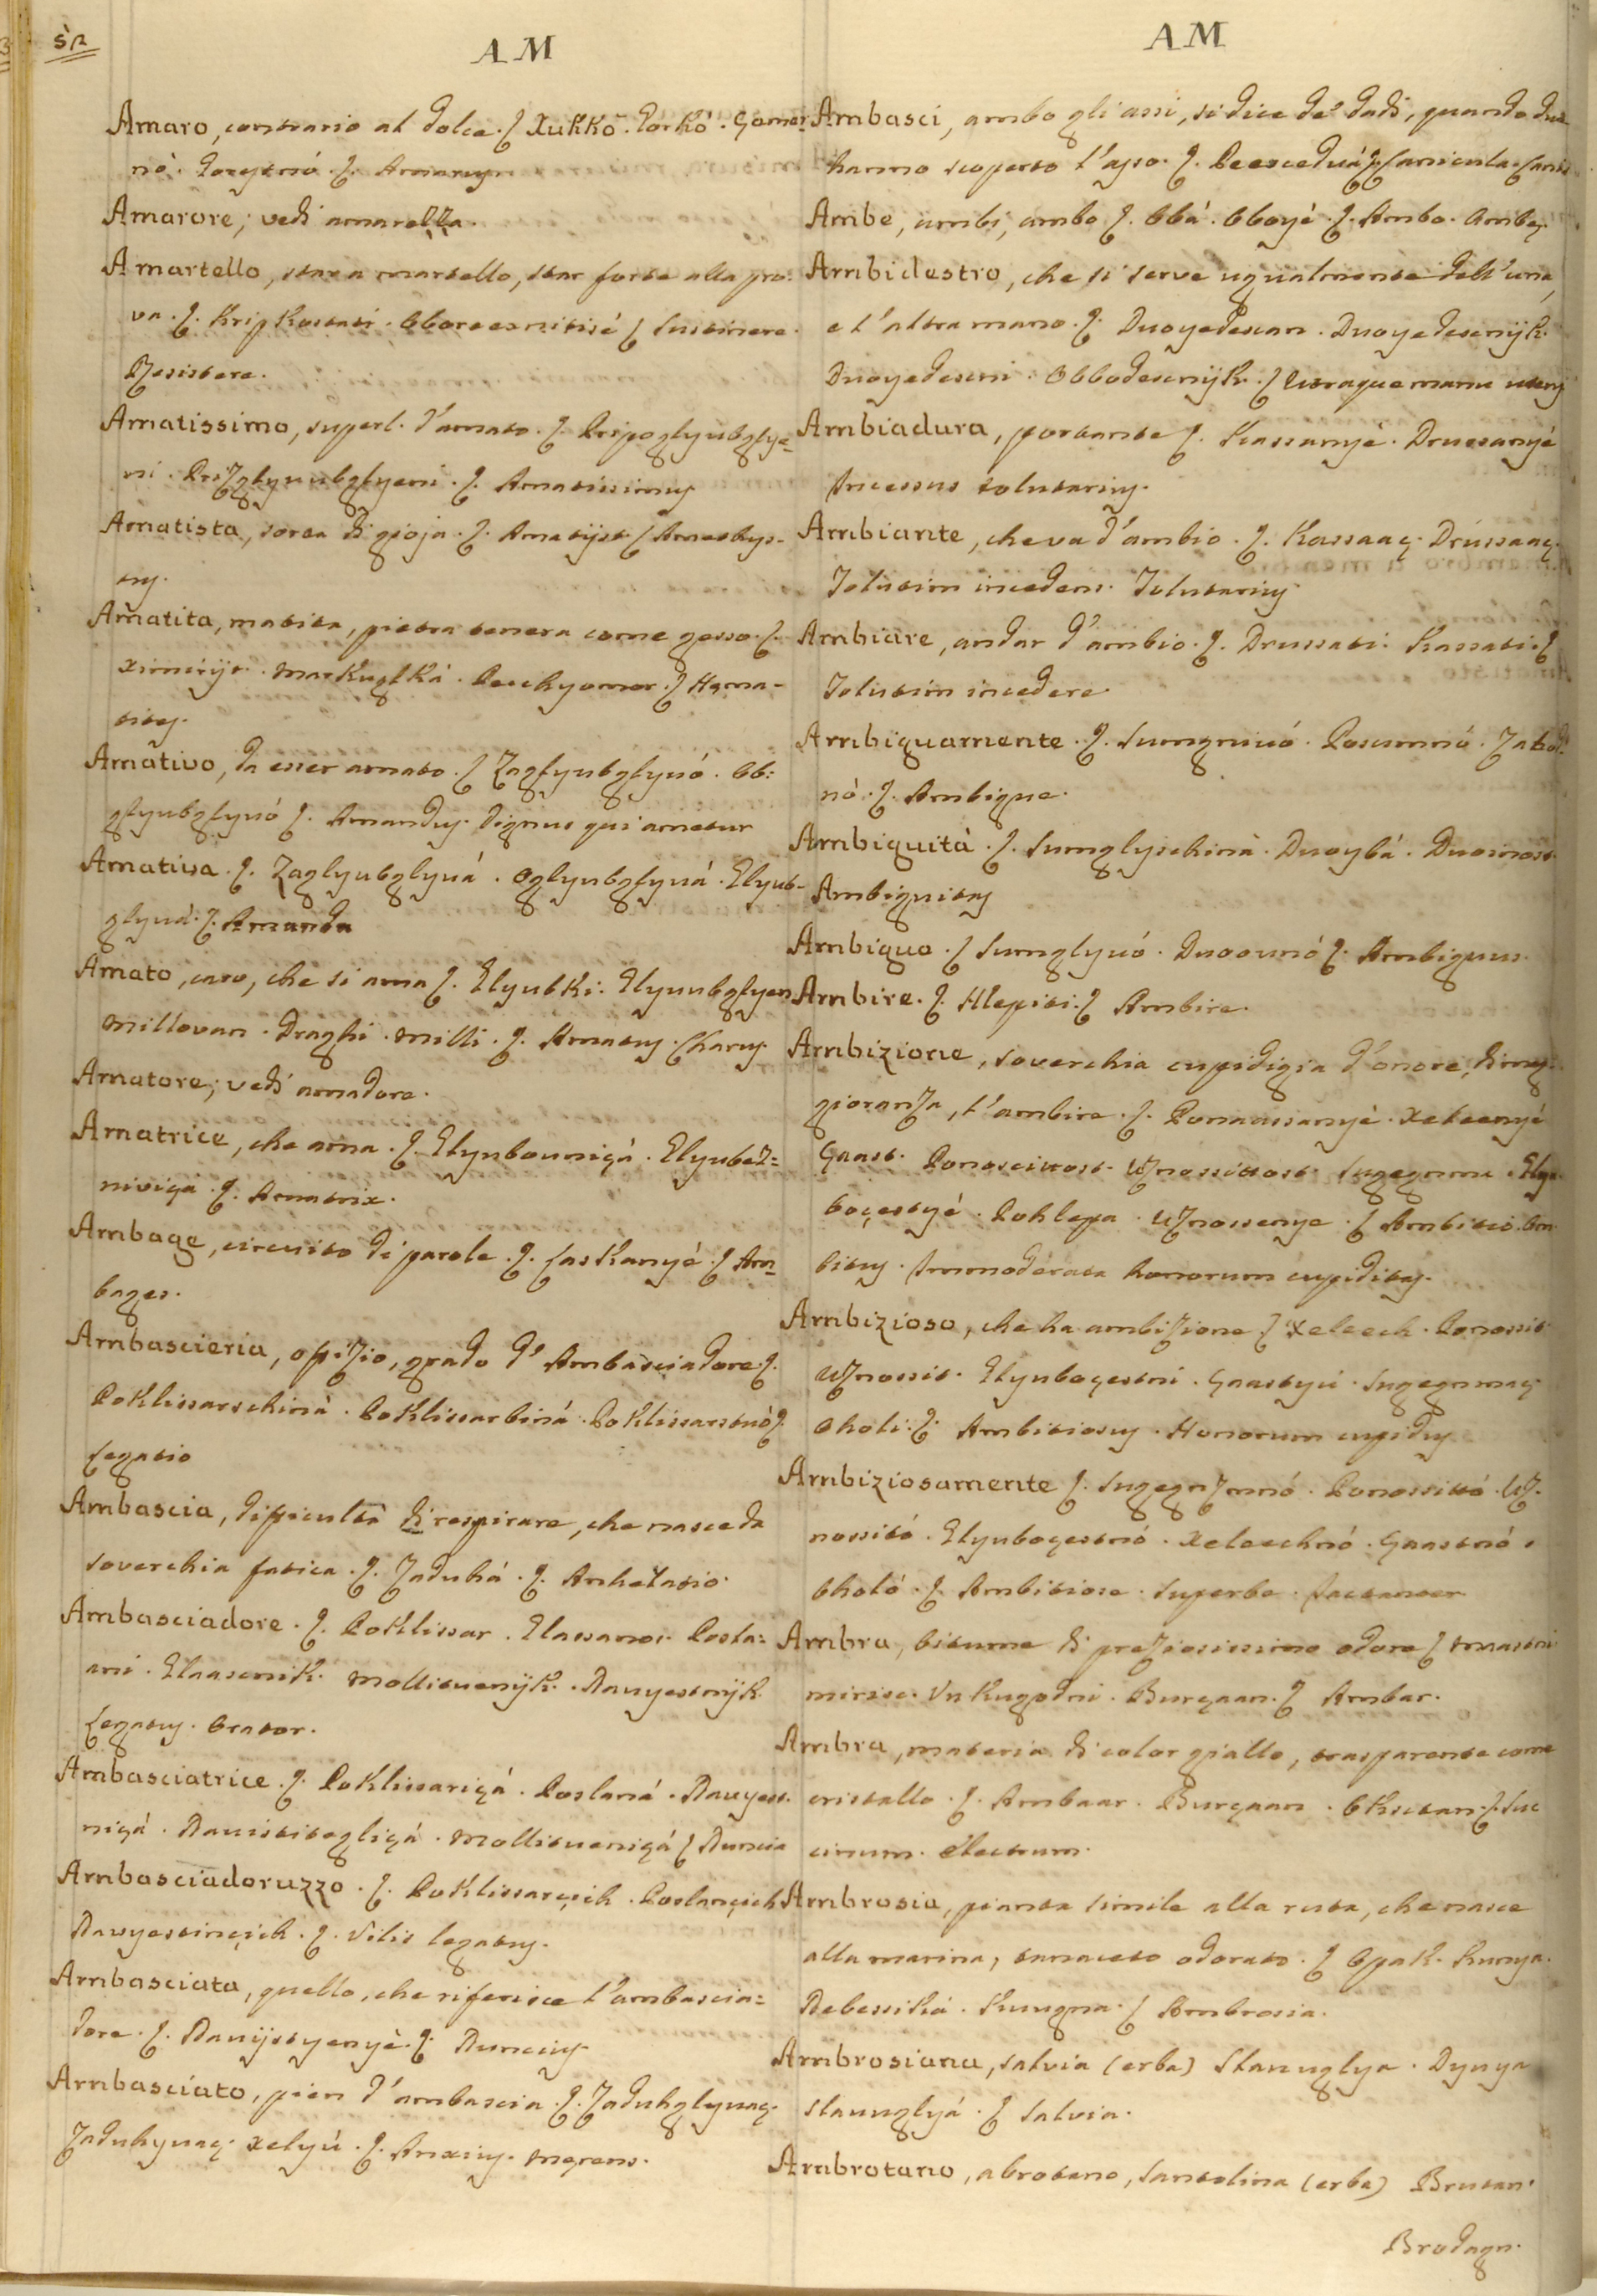 52
AM
Amaro, contrario al dolce. ʃ. Xukkò. Gorkó. Gomor
nò. Amarus
Amarore; vedi amarezza.
Amartello, star a martello, star forte alla pro:
va. ʃ. Kripkostati. ʃ Sustinere.
Resistere.
Amatissimo, superl. d'amato. ʃ. Pripoglyubglye=
ni. Prizglyuubglyeni. ʃ. Amatissimus
Amatista, sorta di gioja. ʃ. Amatijst ʃ Amethys-
tus.
Amatita, matita, pietra tenera come gesso. ʃ.
ʃ Hæma-
tites.
Amativo, da esser amato. ʃ Zaglyubglyuó. Ob:
glyubglyuó ʃ. Amandus. Dignus qui ametur
Amativa. ʃ. Zaglyubglyuá. Oglyubglyuá. Glyub-
glyuá. ʃ. Amanda
Amato, caro, che si ama ʃ. Glyubki. Glyuubglyen
Millovan. Draghi. Milli. ʃ. Amatus. Charus.
Amatore; vedi amadore.
Amatrice, che ama. ʃ. Glyubovniçá. Glyubez=
niviça. ʃ. Amatrix.
Ambage, circuito di parole. ʃ. Laskanyé. ʃ Am=
bages.
Ambascieria, ofizio, grado d'Ambasciadore. ʃ.
Poklissarschinà. Poklissarbinà. Poklissarstuò ʃ.
Legatio
Ambascia, dificultà di respirare, che nasce da
soverchia fatica. ʃ. Zaduhá. ʃ. Anhelatio.
Ambasciadore. ʃ. Poklissar. Glassanos. Posla:
ani. Glaasenik. Mollituenijk. Nauyestnijk.
Legatus. Orator.
Ambasciatrice. ʃ. Poklissariçá. Poslaná. Nauyest.
niçá. Nauistitegliçá. Mollitueniçá ʃ Nuncia
Ambasciadoruzzo. ʃ. Poklissarçich. Poslançich
Nauyestinçich. ʃ. Vilis legatus.
Ambasciata, quello, che riferisce l'ambascia=
dore. ʃ. Nauijstyenyè. ʃ. Nuncius.
Ambasciato, pien d'ambascia. ʃ. Zaduhglyuaç.
Zaduhyuaç. Xelyú. ʃ. Anxius. Mærens.
AM
Ambasci, ambo gli assi, si dice de' dadi, quando due
hanno scoperto l'asso. ʃ. Canicula. Canis
Ambe, ambi, ambo ʃ. Obbá. Obboyé. ʃ. Ambo. Ambæ.
Ambidestro, che si serve ugualmente dell'una,
e l'altra mano. ʃ. Duoyedesan. Duoyedesenijk.
Duoyedesni. Obbodesnijk. ʃ Utraque manu utens
Ambiadura, portante ʃ. Kassanyé. Drussanyé
Incessus tolutarius.
Ambiante, che va d'ambio. ʃ. Kassaaç. Drússaaç.
Tolutim incedens. Tolutarius
Ambiare, andar d'ambio. ʃ. Drussati. Kassati. ʃ
Tolutim incedere.
Ambiguamente. ʃ. Posumnó.
nò. ʃ. Ambigue.
Ambiguità. ʃ. Sumglyschinà. Duoybá. Duoinost.
Ambiguitas
Ambiguo. ʃ Sumglyuó. Duooumó ʃ. Ambiguus.
Ambire. ʃ. Hlepiti. ʃ Ambire.
Ambizione, soverchia cupidigia d'onore, di mag:
gioranza, l'ambire. ʃ. Xeleenyé
Gaast. Ponossittost. Uznossittost. Glyu.
boçestyé. Pohlepa. Uznossenye. ʃ Ambitio. Am
bitus. Immoderata honorum cupiditas.
Ambizioso, che ha ambizione ʃ Xeleech. Ponossit
Uznossit. Glyuboçestni. Gaastyú.
Oholi. ʃ. Ambitiosus. Honorum cupidus
Ambiziosamente ʃ. Ponossittó. Uz.
nossitó. Glyuboçestnó. Xeleechnó. Gaastnó.
Oholó. ʃ. Ambitiose. Superbe. Jactanter
Ambra, bitume di preziosissimo odore ʃ Smastni
miriss. Burçaan. ʃ Ambar.
Ambra, materia di color giallo, trasparente come
cristallo. ʃ. Ambaar. Burçaan. ʃ. Suc
cinum. Electrum.
Ambrosia, pianta simile alla ruta, che nasce
alla marina, tanaceto odorato. ʃ Opak. Kunya.
Nebesska. Kungna. ʃ Ambrosia.
Ambrosiana, salvia (erba) Slauuglya. Dyuya
slauuglyá. ʃ Salvia.
Ambrotano, abrotano, santolina (erba) Brutan.
Brodagn.